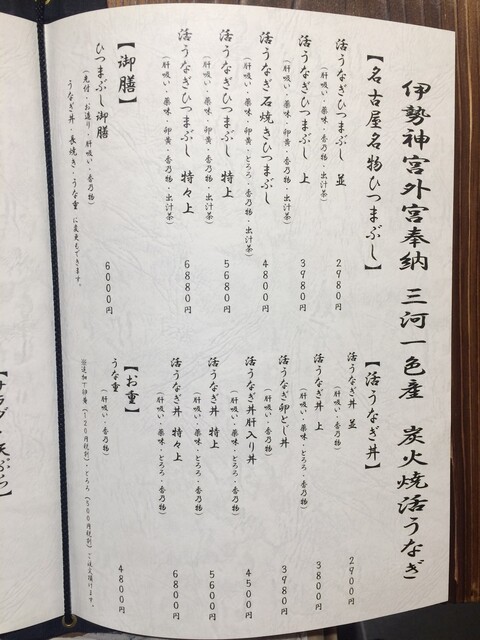 伊勢神宮外宮奉納 三河一色産 炭火焼活うなぎ
【名古屋名物ひつまぶし】
活うなぎひつまぶし 並
(肝吸い・薬味・香乃物・出汁茶)
2980円
活うなぎひつまぶし 上
(肝吸い・薬味・卵黄・香乃物・出汁茶)
3980円
活うなぎ石焼きひつまぶし
(肝吸い・薬味・卵黄・香乃物・出汁茶)
4800円
活うなぎひつまぶし 特上
(肝吸い・薬味・卵黄・香乃物・出汁茶)
5680円
活うなぎひつまぶし 特々上
(肝吸い・薬味・卵黄・香乃物・出汁茶)
6880円
【御膳】
ひつまぶし御膳
(先付・お造り・肝吸い・香乃物)
うなぎ丼・長焼き・うな重 に変更もできます。
6000円
【活うなぎ丼】
活うなぎ丼 並
(肝吸い・香乃物)
2900円
活うなぎ丼 上
(肝吸い・香乃物)
3800円
活うなぎ卵とじ丼
(肝吸い・香乃物)
3980円
活うなぎ丼肝入り丼
(肝吸い・薬味・とろろ・香乃物)
4500円
活うなぎ丼 特上
(肝吸い・薬味・とろろ・香乃物)
5600円
活うなぎ丼 特々上
(肝吸い・薬味・とろろ・香乃物)
6800円
【お重】
うな重
(肝吸い・香乃物)
4800円